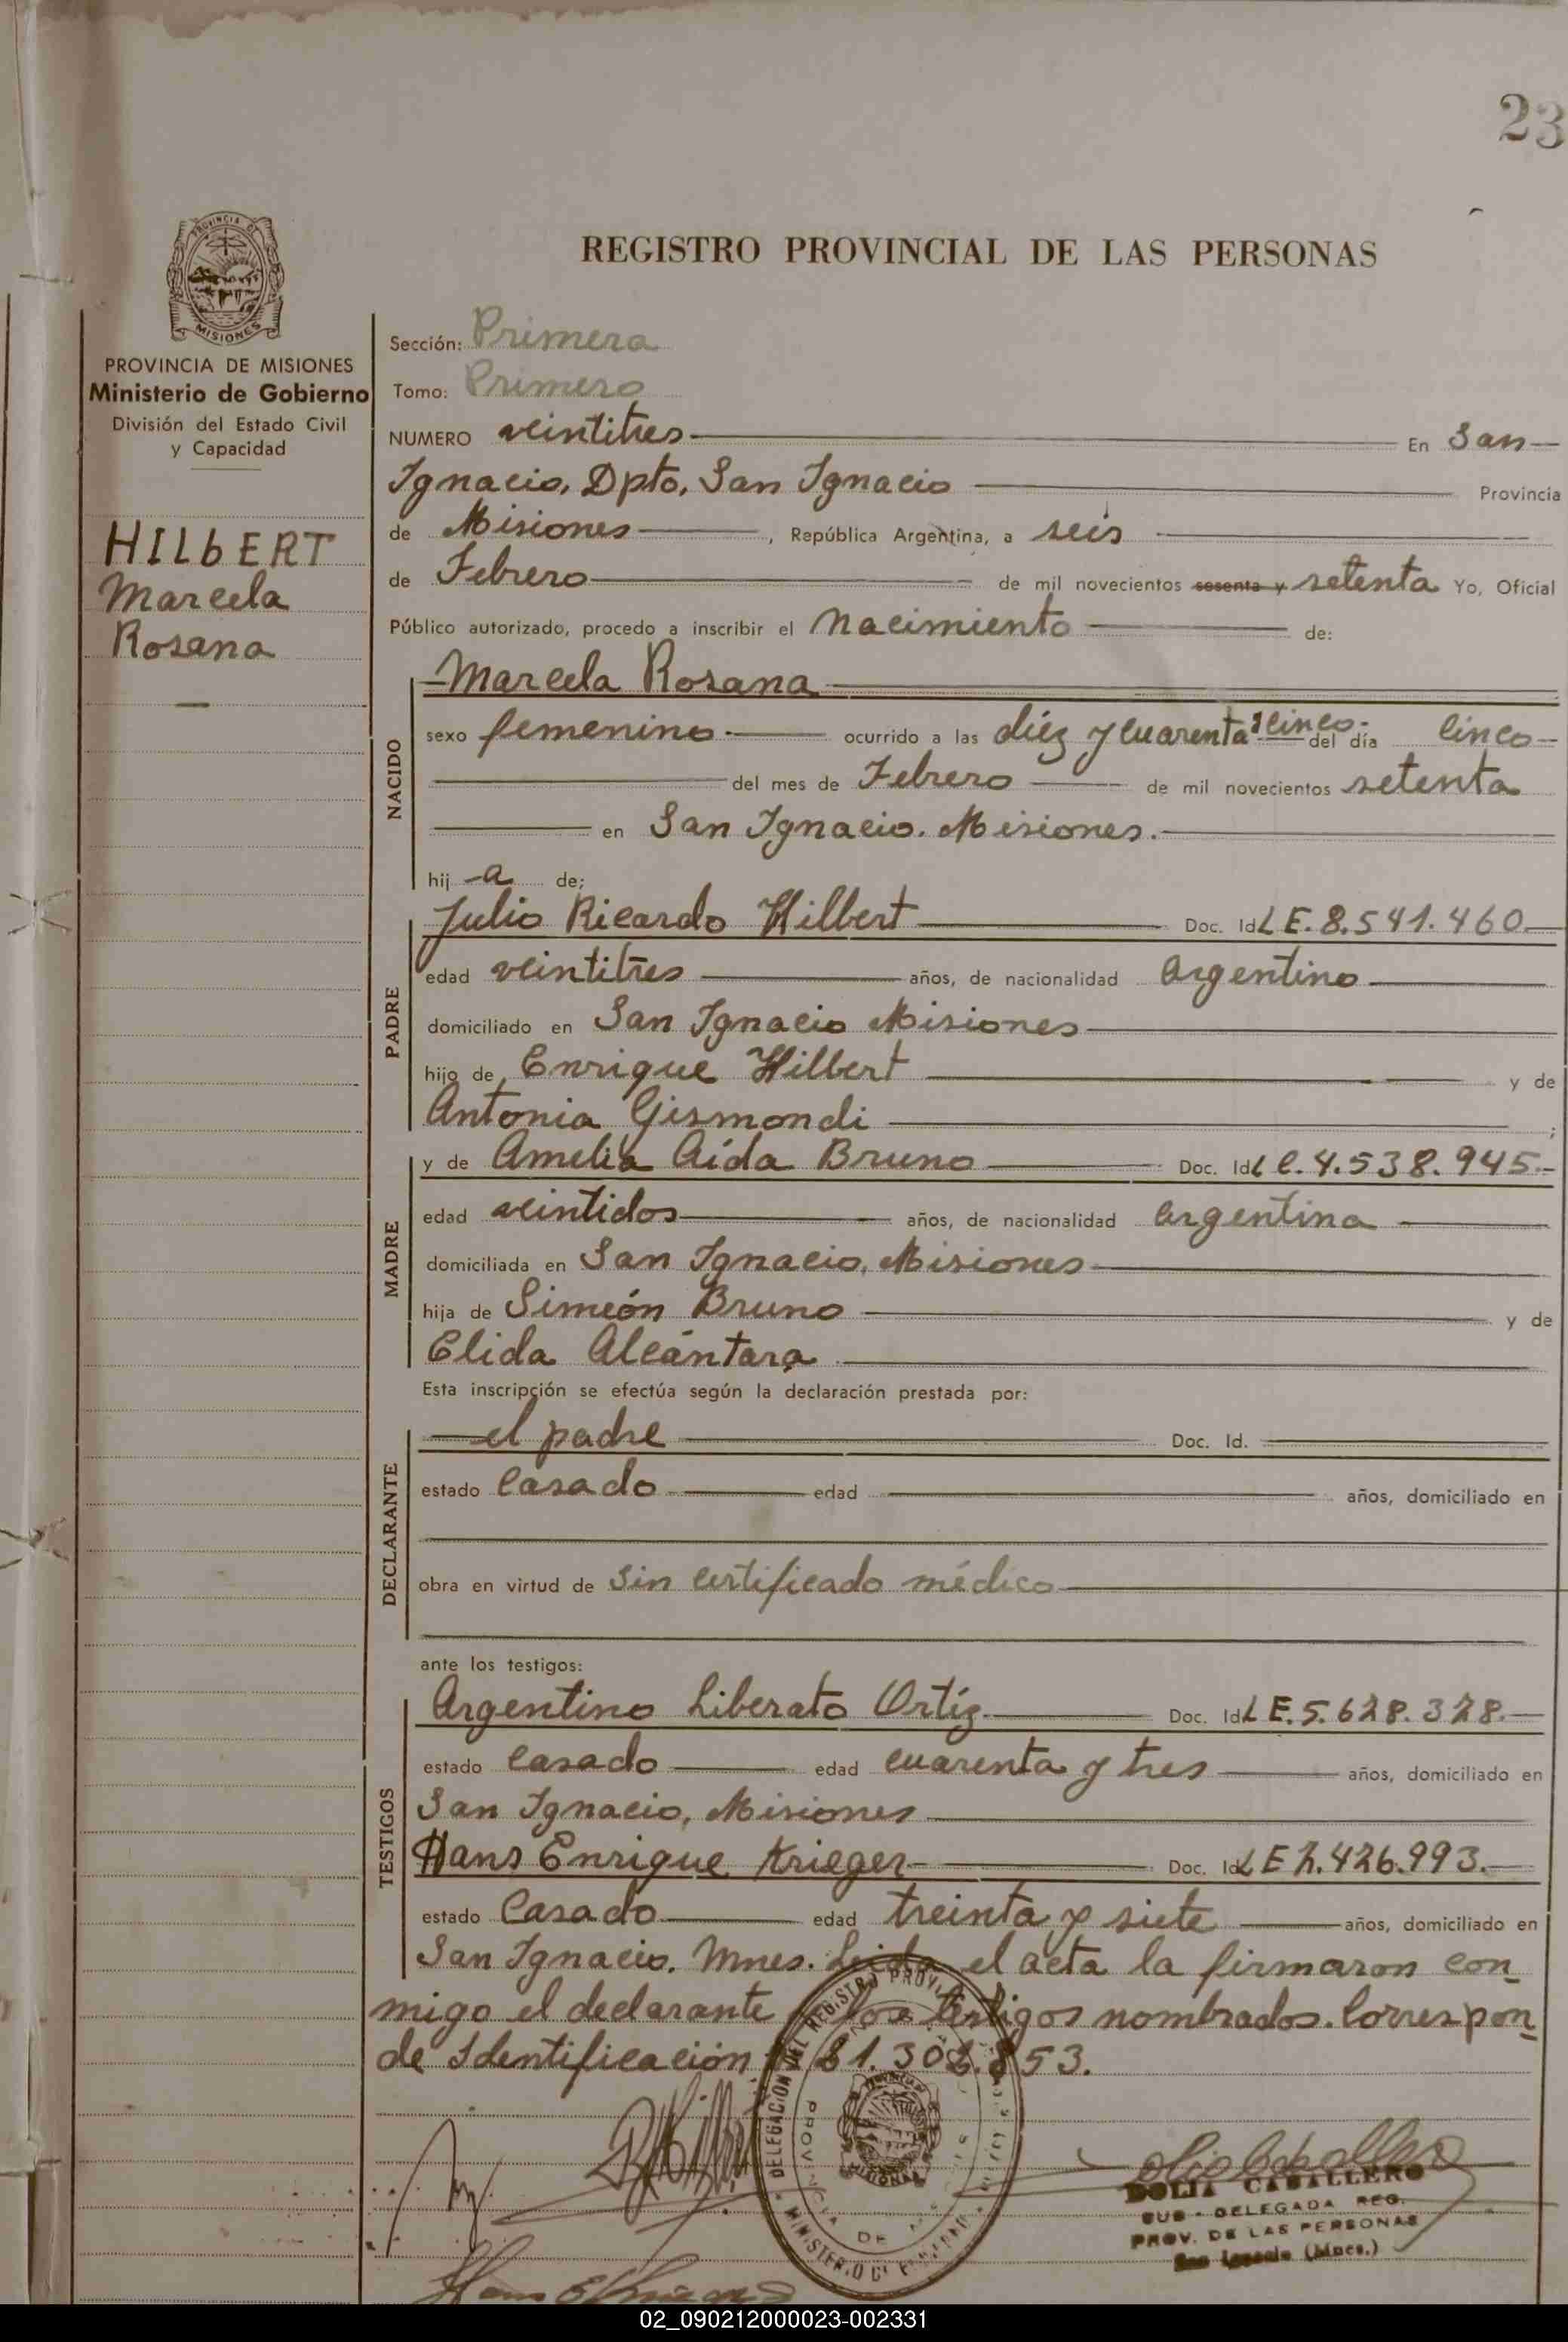 23
REGISTRO PROVINCIAL DE LAS PERSONAS
PROVINCIA DE
MISIONES
PROVINCIA DE MISIONES
Ministerio de Gobierno
División del Estado Civil
y Capacidad
HILbERT
Marcela
Rosana
Sección: Primera
Tomo: Primero
NUMERO veintitres En San
Ignacio, Dpto, San Ignacio Provincia
de Misiones, República Argentina, a seis
de Febrero de mil novecientos sesenta y setenta Yo, Oficial
Público autorizado, procedo a inscribir el Nacimiento de:
NACIDO
Marcela Rosana
sexo femenino ocurrido a las diéz y cuarenta y cinco. del día cinco
del mes de Febrero de mil novecientos setenta
en San Ignacio. Misiones.
hij a de;
PADRE
Julio Ricardo Hilbert Doc. Id LE. 8.541.460
edad veintitres años, de nacionalidad Argentino
domiciliado en San Ignacio Misiones
hijo de Enrique Hilbert y de
Antonia Gismondi ;
MADRE
y de Amelia Aída Bruno Doc. Id LC. 4.538.945.-
edad veintidos años, de nacionalidad Argentina
domiciliada en San Ignacio, Misiones
hija de Simeón Bruno y de
Elida Alcántara
Esta inscripción se efectúa según la declaración prestada por:
DECLARANTE
el padre Doc. Id.
estado Casado edad años, domiciliado en
obra en virtud de sin certificado médico
ante los testigos:
TESTIGOS
Argentino Liberato Ortíz. Doc. Id LE. 5.628.328.
estado Casado edad cuarenta y tres años, domiciliado en
San Ignacio, Misiones
Hans Enrique Krieger Doc. Id LE 2.426.993.
estado Casado edad treinta y siete años, domiciliado en
San Ignacio. Mnes. Leida el acta la firmaron con
migo el declarante y los testigos nombrados. Correspon
de Identificación 21.302.853.
DELEGACION DEL REGISTRO PROVI
PROVINCIA DE
MISIONES
MINISTERIO DE
DOLIA CABALLERO
SUB - DELEGADA REG.
PROV. DE LAS PERSONAS
San Ignacio (Mnes.)
02_090212000023-002331